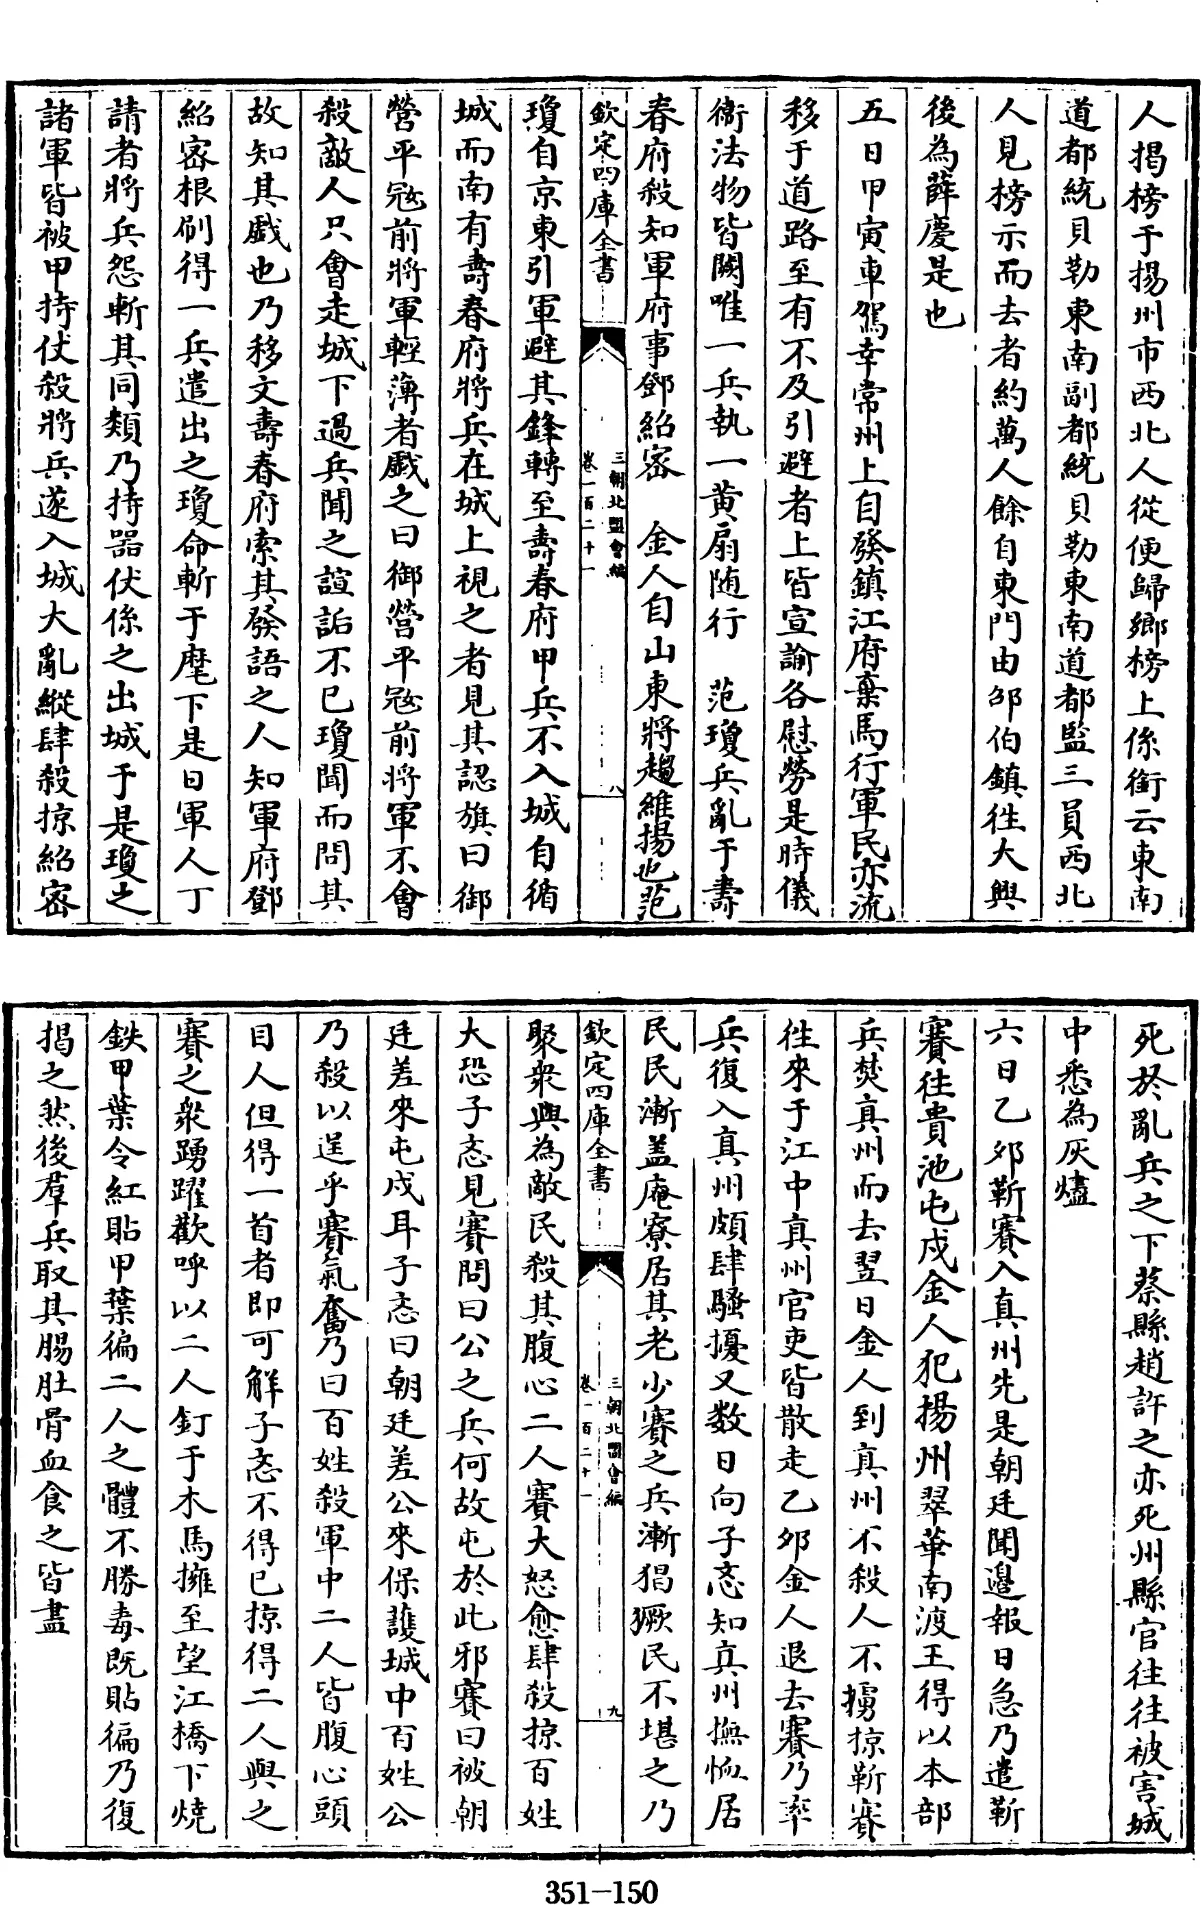 人揭榜于揚州市西北人從便歸鄉榜上係銜云東南
道都統貝勒東南副都統貝勒東南道都監三員西北
人見榜示而去者約萬人餘自東門由邵伯鎮徃大興
後為薛慶是也
五日甲寅車駕幸常州上自發鎮江府棄馬行軍民亦流
移于道路至有不及引避者上皆宣諭各慰勞是時儀
衛法物皆闕唯一兵執一黄扇随行　范瓊兵亂于壽
春府殺知軍府事鄧紹密　金人自山東將趨維揚也范
欽定四庫全書
三朝北盟會編
卷一百二十一
八
瓊自京東引軍避其鋒轉至壽春府甲兵不入城自循
城而南有壽春府將兵在城上視之者見其認旗曰御
營平冦前將軍輕薄者戲之曰御營平冦前將軍不會
殺敵人只會走城下過兵聞之諠詬不已瓊聞而問其
故知其戲也乃移文壽春府索其發語之人知軍府鄧
紹密根刷得一兵遣出之瓊命斬于麾下是日軍人丁
請者將兵怨斬其同類乃持器仗係之出城于是瓊之
諸軍皆被甲持仗殺將兵遂入城大亂縱肆殺掠紹密
死於亂兵之下蔡縣趙許之亦死州縣官往往被害城
中悉為灰燼
六日乙夘靳賽入真州先是朝廷聞邉報日急乃遣靳
賽往貴池屯戍金人犯揚州翠華南渡王得以本部
兵焚真州而去翌日金人到真州不殺人不擄掠靳賽
徃來于江中真州官吏皆散走乙夘金人退去賽乃率
兵復入真州頗肆騷擾又数日向子忞知真州撫恤居
民民漸盖庵寮居其老少賽之兵漸猖獗民不堪之乃
欽定四庫全書
三朝北盟會編
卷一百二十一
九
聚衆與為敵民殺其腹心二人賽大怒愈肆殺掠百姓
大恐子忞見賽問曰公之兵何故屯於此邪賽曰被朝
廷差來屯戍耳子忞曰朝廷差公來保護城中百姓公
乃殺以逞乎賽氣奮乃曰百姓殺軍中二人皆腹心頭
目人但得一首者即可解子忞不得已掠得二人與之
賽之衆踴躍歡呼以二人釘于木馬擁至望江橋下燒
鉄甲葉令紅貼甲葉徧二人之體不勝毒既貼徧乃復
揭之然後羣兵取其腸肚骨血食之皆盡
351-150